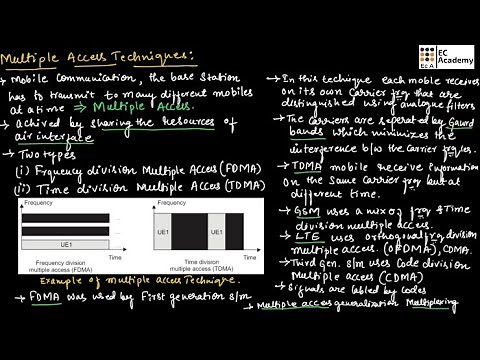 Multiple Access Techniques:
→ Mobile Communication, the base Station
has to transmit to many different mobiles
at a time ⇒ Multiple Access.
→ achived by sharing the resources of
air interface
→ Two types
(i) Frquency division Multiple Access (FDMA)
(ii) Time division Multiple Access (TDMA)
Frequency
UE1
Time
Frequency division
multiple access (FDMA)
Frequency
UE1
UE1
Time
Time division
multiple access (TDMA)
Example of multiple access Technique.
→ FDMA was used by First generation s/m
EC
Academy
ECA
→ In this technique each mobile receives
on its own carrier frq that are
distinguished using analogue filters
→ The carriers are seperated by Gaurd
bands which minimizes the
interference b/w the carrier frq/es.
→ TDMA mobile receive information
on the Same carrier frq but at
different time.
→ GSM uses a mix of frq & Time
division multiple access.
→ LTE uses orthogonal frq division
multiple access. (OFDMA), CDMA.
→ Third Gen. s/m uses Code division
Multiple access (CDMA)
→ Signals are labled by codes
→ Multiple access generalization Multiplexing